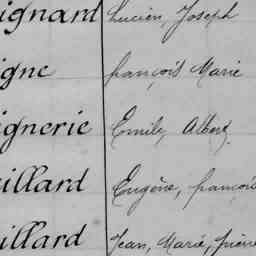 ignard Lucien, Joseph
igne françois Marie
ignerie Emile, Albert
illard Eugène, françois
illard Jean, Marie, pierre